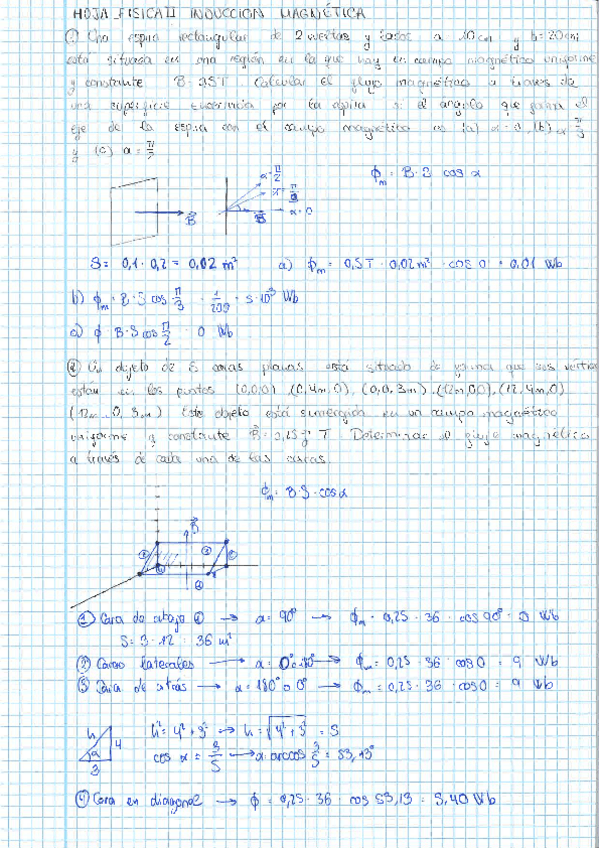 HOJA FISICA II INDUCCION MAGNÉTICA
① Una espira rectangular de 2 vueltas y lados a 10cm y b=20cm
está situada en una región en la que hay un campo magnético uniforme
y constante B=0,5T Calcular el flujo magnético a través de
una superficie por la espira si el ángulo que forma el
eje de la espira con el campo magnético es (a) α=0, (b) α π/3
y (c) α=π/2
α=π/2
π/3
α=0
B
B
ϕm = B·S cos α
S= 0,1 · 0,2 = 0,02 m²
a) ϕm = 0,5T · 0,02m² · cos 0 = 0,01 Wb
b) ϕm = B·S cos π/3 · 1/200 = 5·10⁻³ Wb
c) ϕ B·S cos π/2 · 0 Wb
② Un objeto de 5 caras planas está situado de forma que sus vértic
están en los puntos (0,0,0), (0,4m,0), (0,0,3m), (12m,0,0), (12,4m,0)
(12m, 0, 3m) Este objeto está sumergido en un campo magnético
uniforme y constante B=0,25 j T Determinar el flujo magnético
a través de cada una de las caras.
ϕm = B·S·cosα
B
① Cara de abajo → α=90° → ϕm = 0,25 · 36 · cos 90° = 0 Wb
S= 3·12 = 36 m²
③ Caras laterales → α= 0° → ϕm = 0,25 · 36 · cos 0 = 9 Wb
⑤ Cara de atrás → α=180° o 0° → ϕm = 0,25 · 36 · cos 0 = 9 Wb
h
α
4
3
h²= 4²+3² → h= √4²+3² = 5
cos α = 3/5 → α arccos 3/5 = 53,13°
④ Cara en diagonal → ϕ = 0,25 · 36 · cos 53,13 = 5,40 Wb